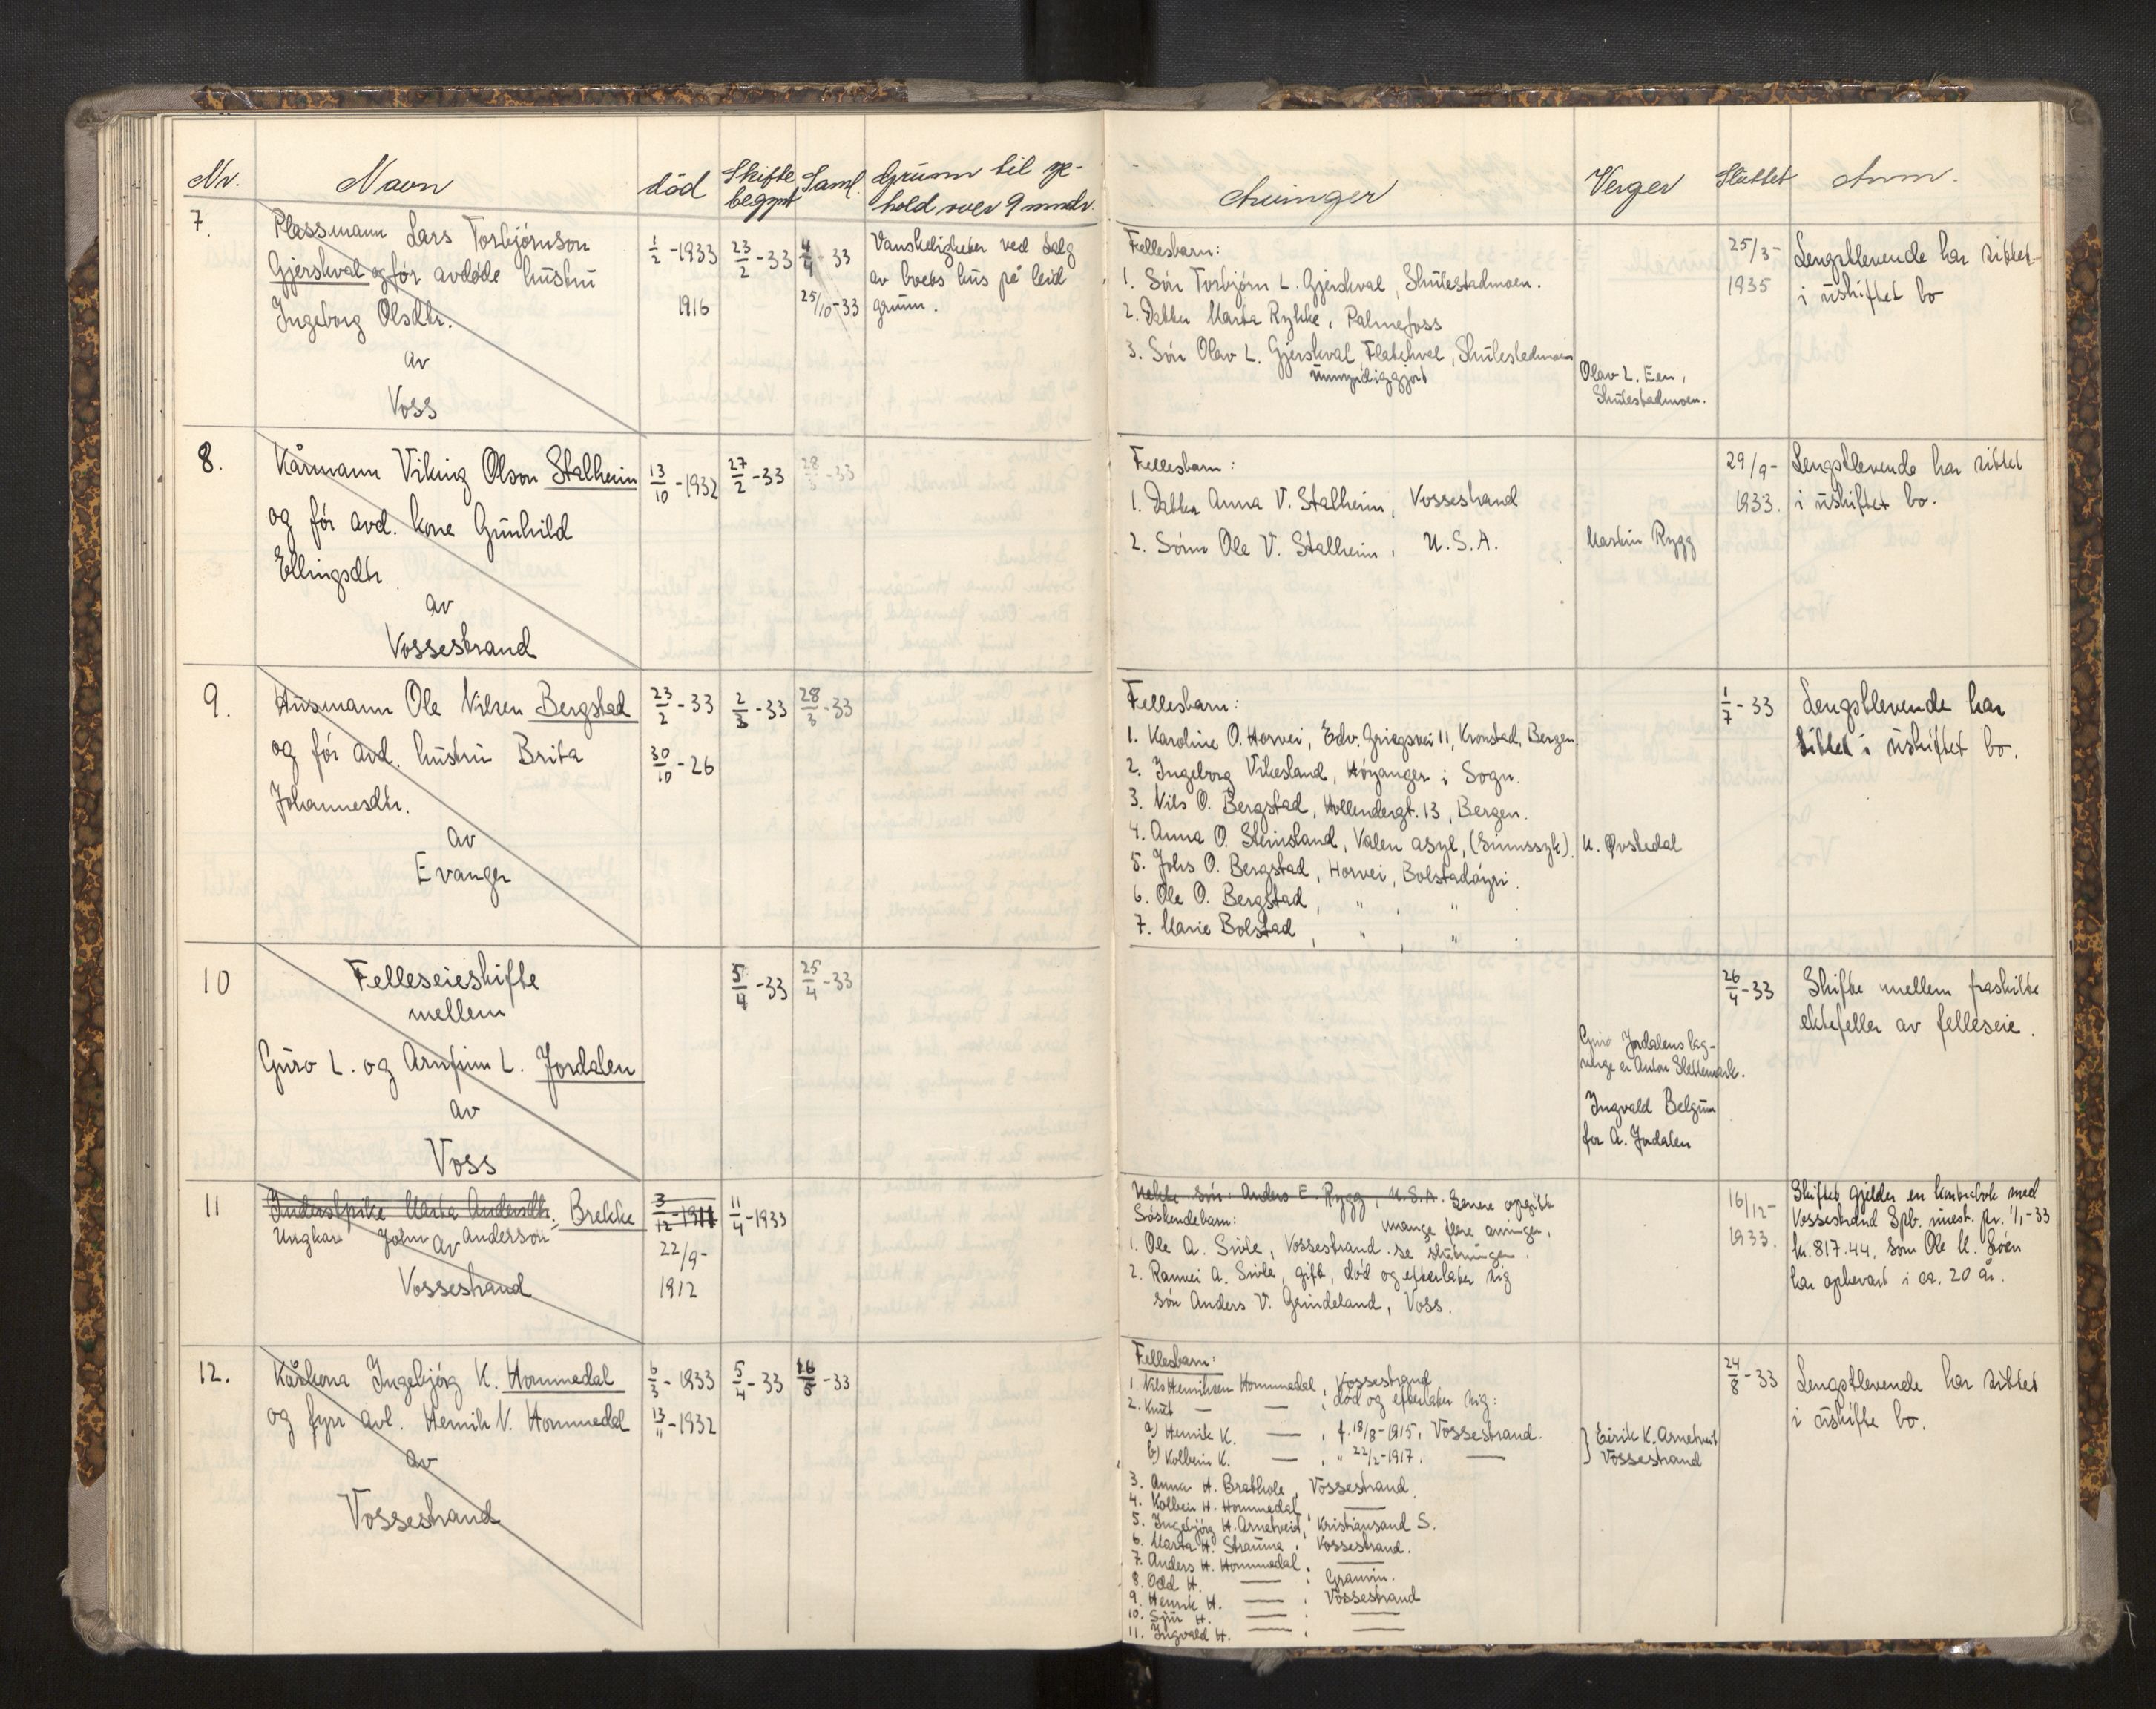 Nr. Navn död Skifte begynt Saml. Grunn til op-
hold over 9 mndr. Arvinger Verger Sluttet Anm.
7. Plassmann Lars Torbjörnson
Gjerskval og för avdöde hustru
Ingeborg Olsdtr.
av
Voss
1/2 - 1933
1916
23/2 - 33
4/4 - 33
25/10 - 33
Vanskeligheter ved salg
av boets hus på leid
grunn.
Fellesbarn:
1. Sön Torbjörn L. Gjerskval, Skulestadmoen.
2. Datter Marta Rykke, Palmefoss
3. Sön Olav L. Gjerskval Flatekval, Skulestadmoen
umyndiggjort
Olav L. Een,
Skulestadmoen.
25/3 -
1935
Lengstlevende har sittet
i uskiftet bo
8. Kårmann Viking Olson Stalheim
og för avd. kone Gunhild
Ellingsdtr
av
Vossestrand
13/10 - 1932
27/2 - 33
28/3 - 33
Fellesbarn:
1. Datter Anna V. Stalheim, Vossestrand
2. Sönn Ole V. Stalheim, U.S.A.
Martin Rygg
29/9 -
1933.
Lengstlevende har sittet
i uskiftet bo.
9. Husmann Ole Nilsen Bergstad
og för avd. hustru Brita
Johannesdtr.
av
Evanger
23/2 - 33
30/10 - 26
2/3 - 33
28/3 - 33
Fellesbarn:
1. Karoline O. Horvei, Edv. Griegsvei 11, Kronstad, Bergen.
2. Ingeborg Vikesland, Höyanger i Sogn.
3. Nils O. Bergstad, Hollendergt. 13, Bergen.
4. Anna O. Steinsland, Valen asyl, (sinnssyk).
5. Johs O. Bergstad, Horvei, Bolstadöyri.
6. Ole O. Bergstad, " , " .
7. Marie Bolstad , " , " .
1/7 - 33
Lengstlevende har
sittet i uskiftet bo.
10 Felleseieskifte
mellem
Guro L. og Arnfinn L. Jordalen
av
Voss
5/4 - 33
25/4 - 33
Guro Jordalens lag-
verge er Anton Slettemark.
Ingvald Belgum
for A. Jordalen
26/4 - 33
Skifte mellem fraskilte
ektefeller av felleseie.
11 Inderstpike Marta Andersdtr. Brekke
Ungkar John Anderson
av
Vossestrand
3/12 - 1911
22/9 -
1912
11/4 - 1933
Anders E. Rygg, U.S.A. Senere opgitt
mange flere arvinger,
Söskendebarn:
1. Ole A. Sivle, Vossestrand. se slutningen.
2. Rannei A. Sivle, gift, död og efterlater sig
sön Anders V. Grindeland, Voss.
16/12 -
1933.
Skiftet gjelder en kontrabok med
Vossestrand Spb. innest. pr. 1/1-33
kr. 817.44, som Ole
har opbevart i ca. 20 år.
12. Kårkona Ingebjörg K. Hommedal
og fyrr avl. Henrik N. Hommedal
av
Vossestrand
6/3 - 1933
13/11 - 1932
5/4 - 33
16/5 - 33
Fellesbarn:
1 Nils Henriksen Hommedal, Vossestrand
2. Knut — — , död og efterlater sig:
a) Henrik K. — , f. 18/8-1915, Vossestrand.
b) Kolbein K. — , " 22/2-1917. —
3. Anna H. Brathole, Vossestrand.
4. Kolbein H. Hommedal, —
5. Ingebjörg H. Arnetveit, Kristiansand S.
6. Marta H. Straume, Vossestrand.
7. Anders H. Hommedal, —
8. Odd H. — , Granvin.
9. Henrik H. — , Vossestrand
10. Sjur H. — , —
11. Ingvald H. — , —
} Eirik K. Arnetveit
Vossestrand
24/8 - 33
Lengstlevende har sittet
i uskifte bo.